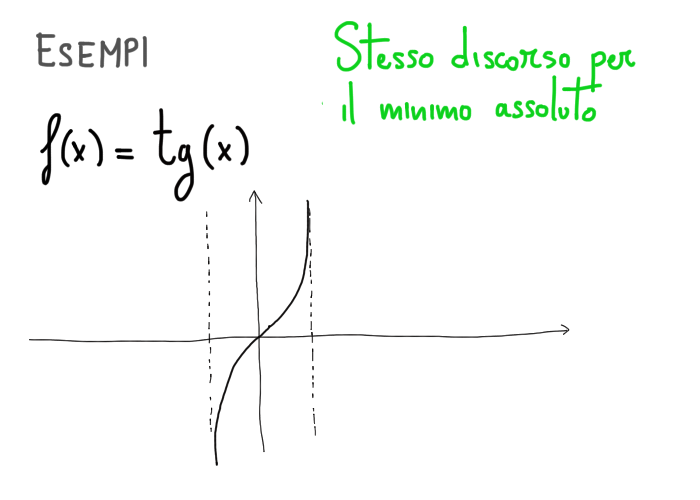 ESEMPI
Stesso discorso per
il minimo assoluto
f(x) = tg(x)